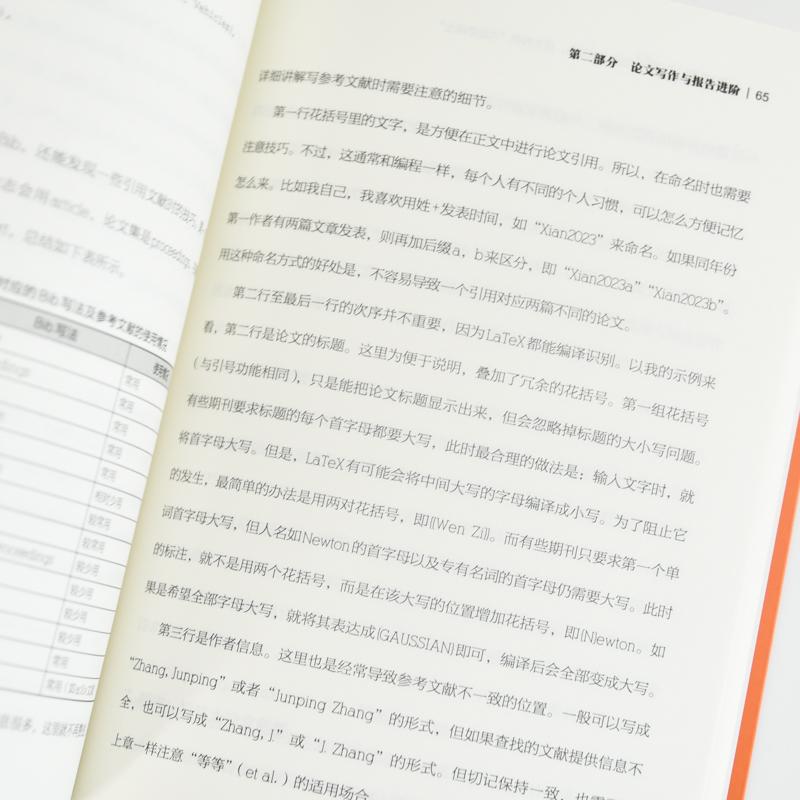 Vehicles,
Bib，还能发现一些引用文献的技巧。
态会用article，论文集是proceeding，
总结如下表所示。
对应的 Bib 写法及参考文献的使用情况
Bib 写法
使用情况
常用
常用
常用
常用
常用
相对少用
较常用
较常用
roceedings
较少用
较少用
较少用
较少用
常用
常用（
第二部分 论文写作与报告进阶 | 65
详细讲解写参考文献时需要注意的细节。
第一行花括号里的文字，是方便在正文中进行论文引用。所以，在命名时也需要
注意技巧。不过，这通常和编程一样，每个人有不同的个人习惯，可以怎么方便记忆
怎么来。比如我自己，我喜欢用姓+发表时间，如“Xian2023”来命名。如果同年份
第一作者有两篇文章发表，则再加后缀a，b来区分，即“Xian2023a”“Xian2023b”。
用这种命名方式的好处是，不容易导致一个引用对应两篇不同的论文。
第二行至最后一行的次序并不重要，因为LaTeX都能编译识别。以我的示例来
看，第二行是论文的标题。这里为便于说明，叠加了冗余的花括号。第一组花括号
（与引号功能相同），只是能把论文标题显示出来，但会忽略掉标题的大小写问题。
有些期刊要求标题的每个首字母都要大写，此时最合理的做法是：输入文字时，就
将首字母大写。但是，LaTeX有可能会将中间大写的字母编译成小写。为了阻止它
的发生，最简单的办法是用两对花括号，即{{Wen Zi}}。而有些期刊只要求第一个单
词首字母大写，但人名如Newton的首字母以及专有名词的首字母仍需要大写。此时
的标注，就不是用两个花括号，而是在该大写的位置增加花括号，即{N}ewton。如
果是希望全部字母大写，就将其表达成{GAUSSIAN}即可，编译后会全部变成大写。
第三行是作者信息。这里也是经常导致参考文献不一致的位置。一般可以写成
“Zhang, Junping”或者“Junping Zhang”的形式，但如果查找的文献提供信息不
全，也可以写成“Zhang, J.”或“J. Zhang”的形式。但切记保持一致，也需
上章一样注意“等等”（et al.）的适用场合。